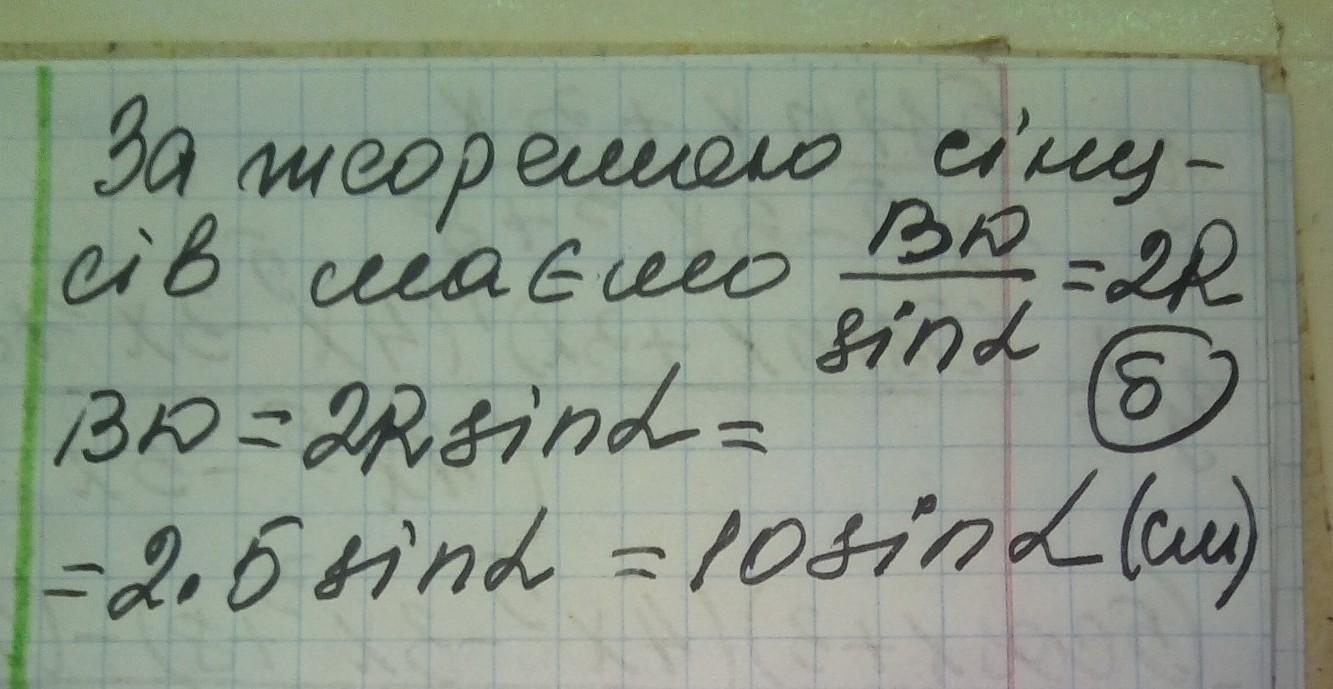 За теоремою сіну-
сів маємо BD/sinα = 2R
б
BD = 2R sinα =
= 2·5 sinα = 10 sinα (см)